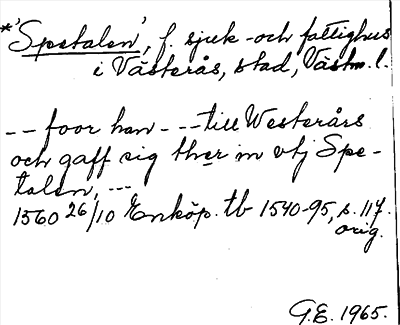 *'Spetalen', f. sjuk- och fattighus
i Västerås, stad, Västm. l.
-- foor han --- till Westerårs
och gaff sig ther in vtj Spe-
talen, ---
1560 26/10 Enköp. tb 1540-95, s. 117.
orig.
G.E. 1965.